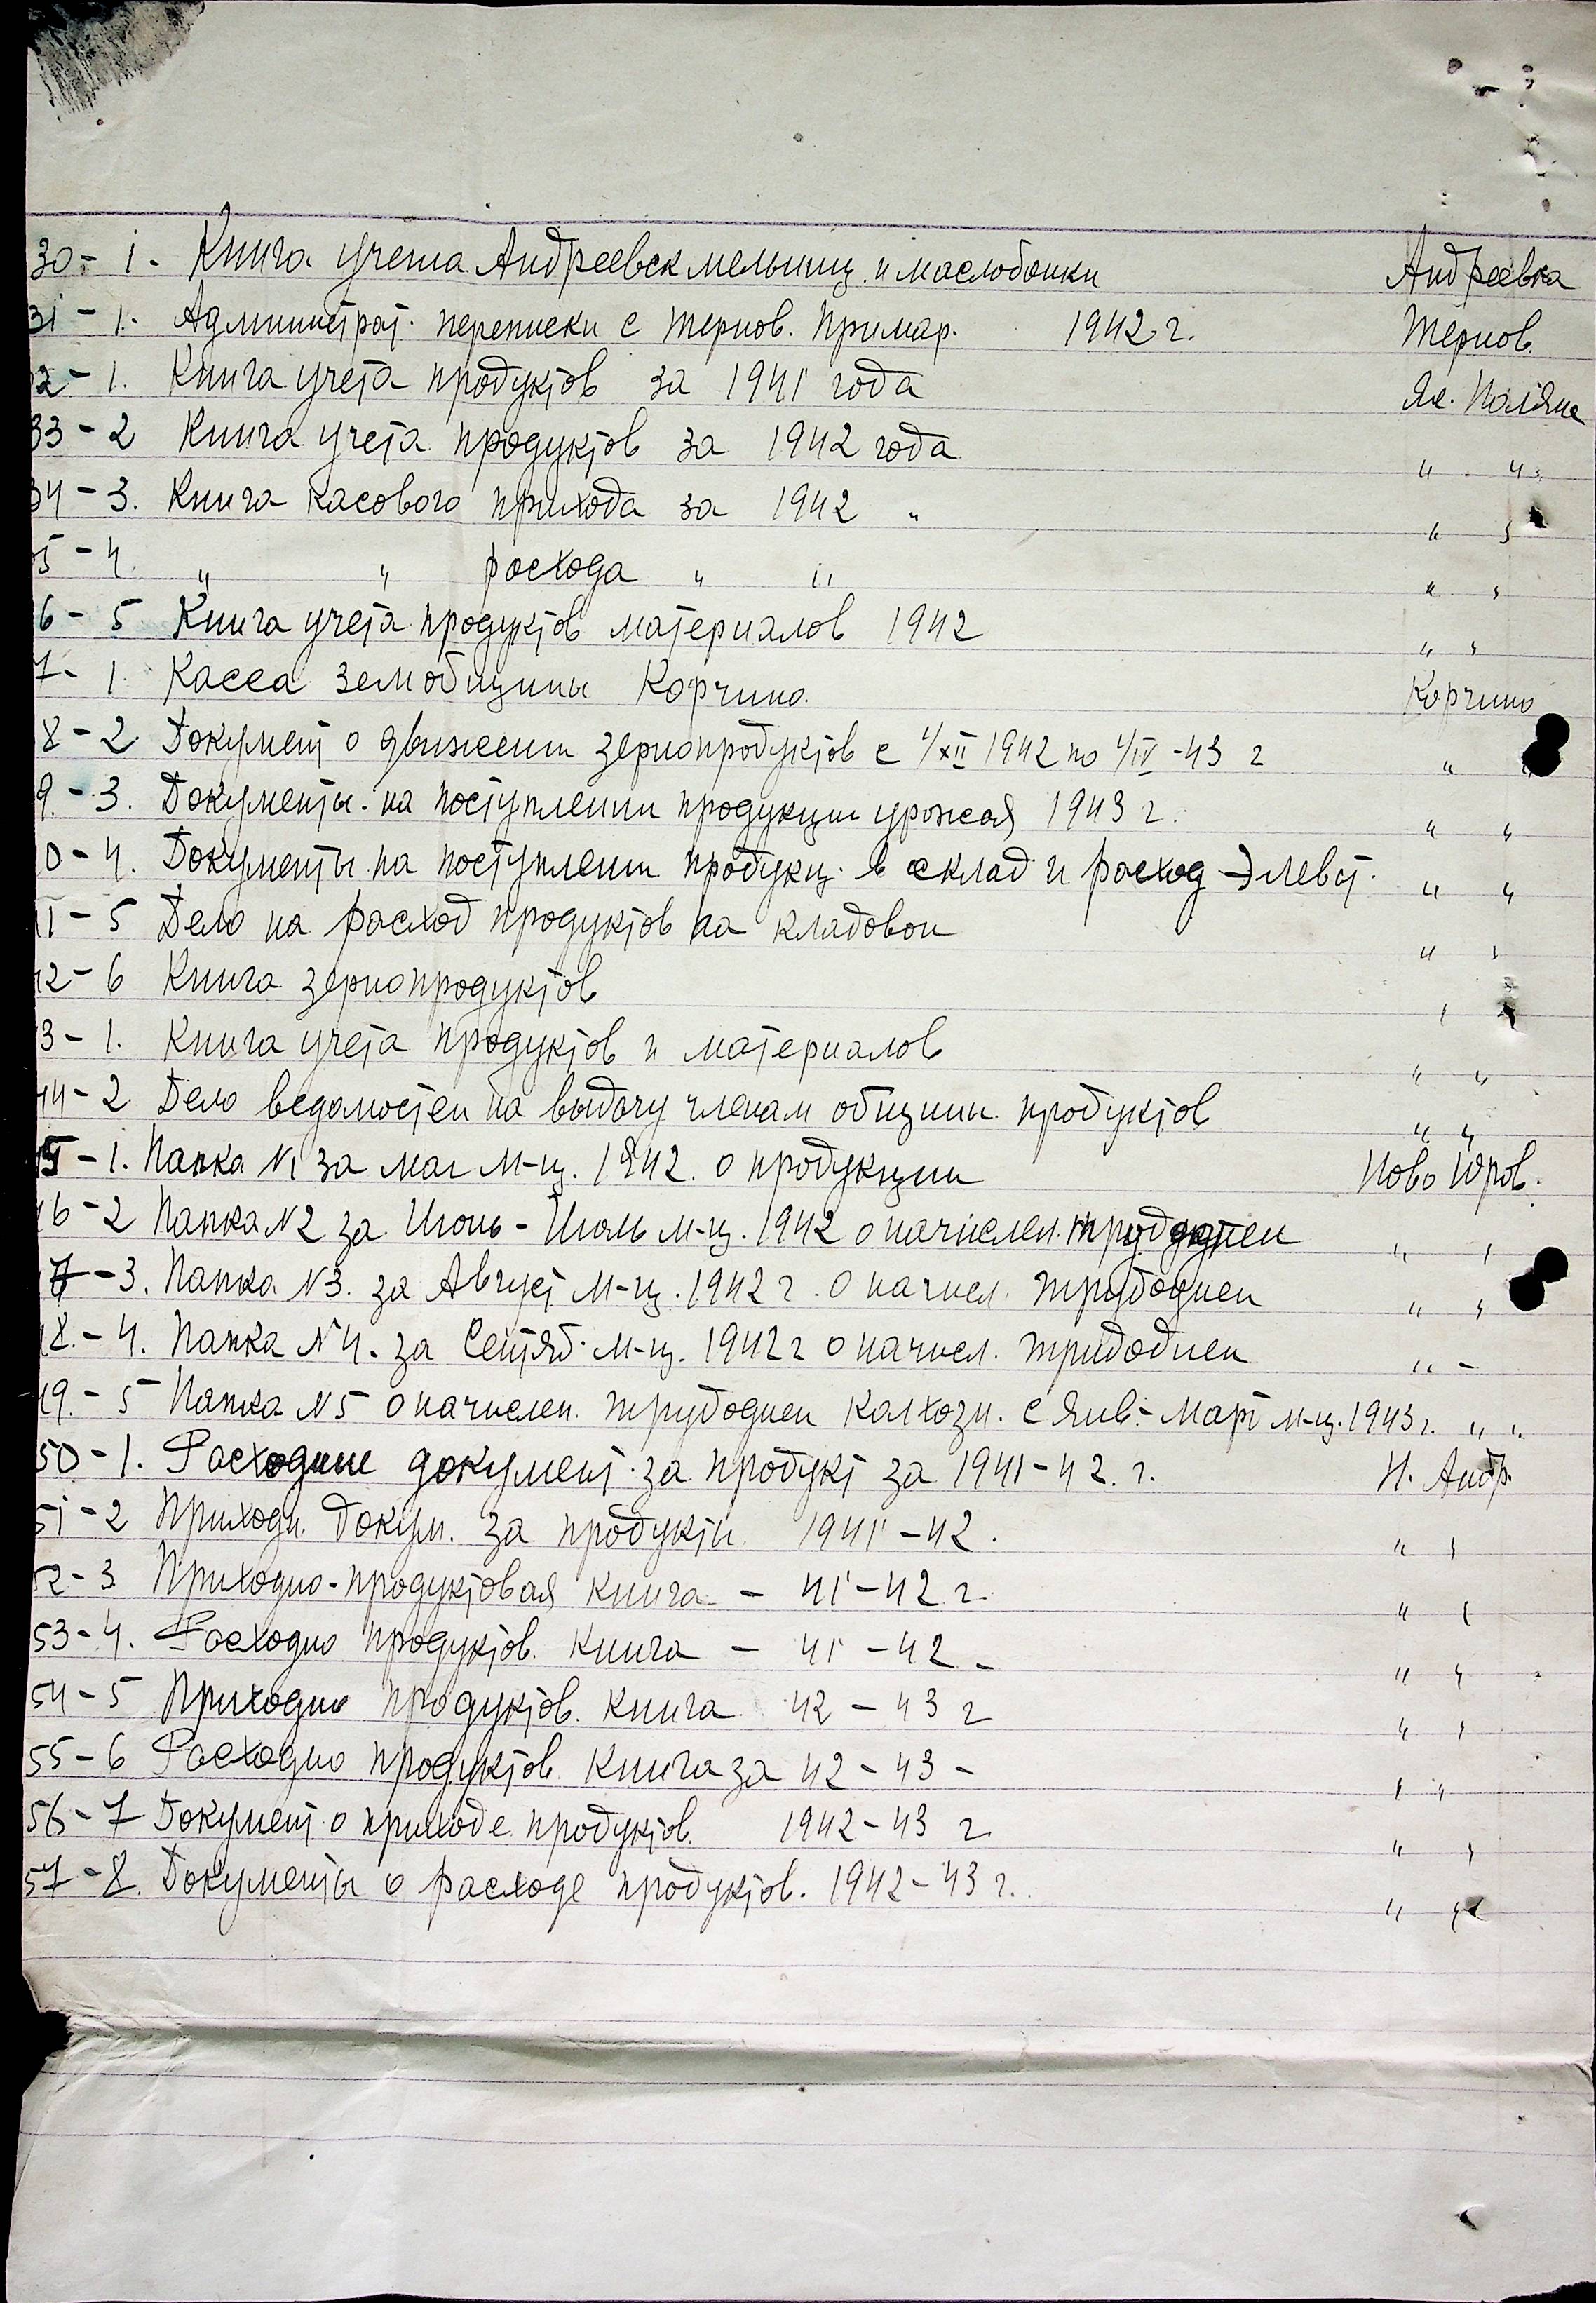 30 - 1 - Книга учета Андреевск мельниц. и маслобойки Андреевка
31 - 1. Администрат. переписки с Тернов. Примар. 1942 г. Тернов.
2 - 1. Книга учета продуктов за 1941 года Яс. Поляна
33 - 2 Книга учета продуктов за 1942 года " "
34 - 3. Книга касового прихода за 1942 " " "
5 - 4. " " расхода " " " "
6 - 5 Книга учета продуктов материалов 1942 " "
7 - 1 Касса Земобщины Корчино. Корчино
8 - 2 Документ о движении зернопродуктов с 1/XII 1942 по 1/IV - 43 г " "
9 - 3. Документы на поступлении продукции урожая 1943 г. " "
0 - 4. Документы на поступлени продукц. в склад и расход Элеват. " "
11 - 5 Дело на расход продуктов на кладовои " "
12 - 6 Книга зернопродуктов " "
3 - 1. Книга учета продуктов и материалов " "
14 - 2 Дело ведомостеи на выдачу членам общины. продуктов " "
5 - 1. Папка N1 за маи м-ц. 1942. о продукции Ново Юров.
6 - 2 Папка N2 за Июнь - Июль м-ц. 1942 о начислен. трудоднеи " "
7 - 3. Папка N3. за Август м-ц. 1942 г. о начисл. трудоднеи " "
8. - 4. Папка N4. за Сентяб. м-ц. 1942 г о начисл. трудоднеи " -
9. - 5 Папка N5 о начислен. трудоднеи колхозн. с Янв. - Март м-ц. 1943 г. " "
50 - 1. Расходные документ. за продукт за 1941 - 42. г. Н. Андр.
51 - 2 Приходн. докум. за продукты 1941 - 42. " "
52 - 3 Приходно - продуктовая книга - 41 - 42 г. " "
53 - 4. Расходно продуктов. книга - 41 - 42 - " "
54 - 5 Приходно продуктов. книга 42 - 43 г " "
55 - 6 Расходно продуктов. книга за 42 - 43 - " "
56 - 7 Документ о приходе продуктов. 1942 - 43 г. " "
57 - 8. Документы о расходе продуктов. 1942 - 43 г. " "